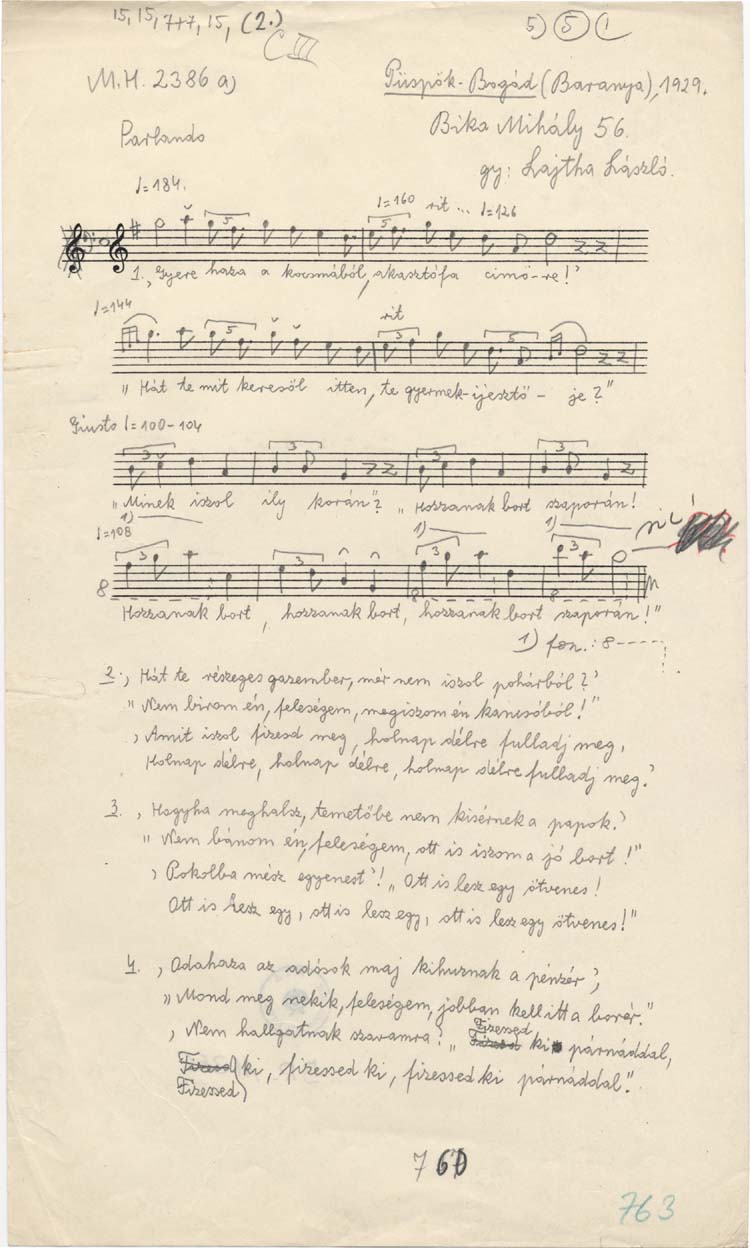 15, 15, 7+7, 15, (2.)
C III
5) 5 (
M.H. 2386 a)
Püspök-Bogád (Baranya), 1929.
Parlando
Bika Mihály 56.
gy: Lajtha László.
♩=184.
♩=160 rit... ♩=126
5 5
1. ‚Gyere haza a kocsmából, akasztófa cimö-re!’
♩=144
rit
5 3 5
„Hát te mit keresöl itten, te gyermek-ijesztő - je?"
Giusto ♩=100-104
3 3 3 3
„Minek iszol ily korán"? „Hozzanak bort szaporán!
1)
♩=108
1) 1)
3 3 3 3
8 8 8
Hozzanak bort, hozzanak bort, hozzanak bort szaporán!"
1) fon.: 8----
2. ‚Hát te részeges gazember, mér nem iszol pohárból?’
„Nem birom én, feleségem, megiszom én kancsóból!"
‚Amit iszol fizesd meg, holnap délre fulladj meg,
Holnap délre, holnap délre, holnap délre fulladj meg.’
3. ‚Hogyha meghalsz, temetőbe nem kisérnek a papok.’
„Nem bánom én, feleségem, ott is iszom a jó bort!"
‚Pokolba mész egyenest’! „Ott is lesz egy ötvenes!
Ott is lesz egy, ott is lesz egy, ott is lesz egy ötvenes!"
4. ‚Odahaza az adósok maj kihuznak a pénzér’,
„Mond meg nekik, feleségem, jobban kell itt a borér."
‚Nem hallgatnak szavamra?’ „Fizessed ki párnáddal,
Fizessed ki, fizessed ki, fizessed ki párnáddal".
760
763